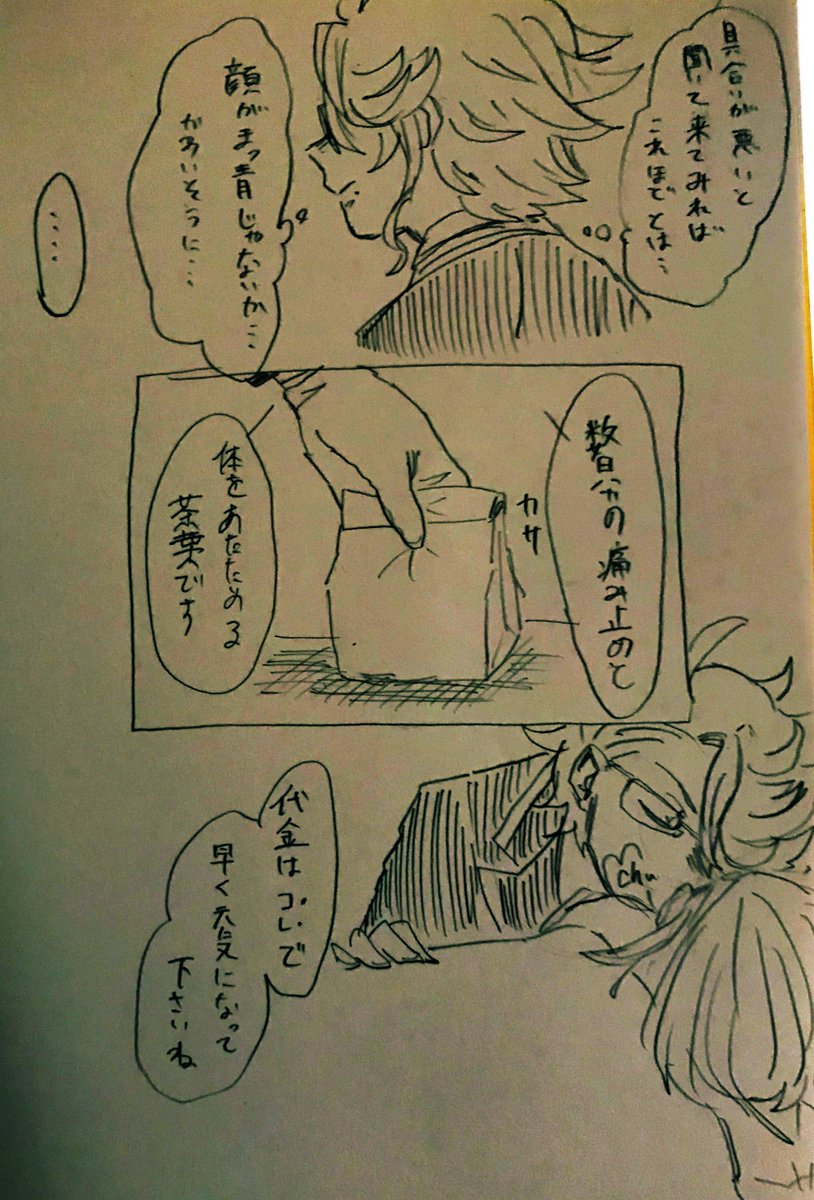 具合いが悪いと
聞いて来てみれば
これほどとは…
顔がまっ青じゃないか…
かわいそうに…
……
数日分の痛み止めと
カサ
体をあたためる
茶葉です
chu
代金はコレで
早く元気になって
下さいね